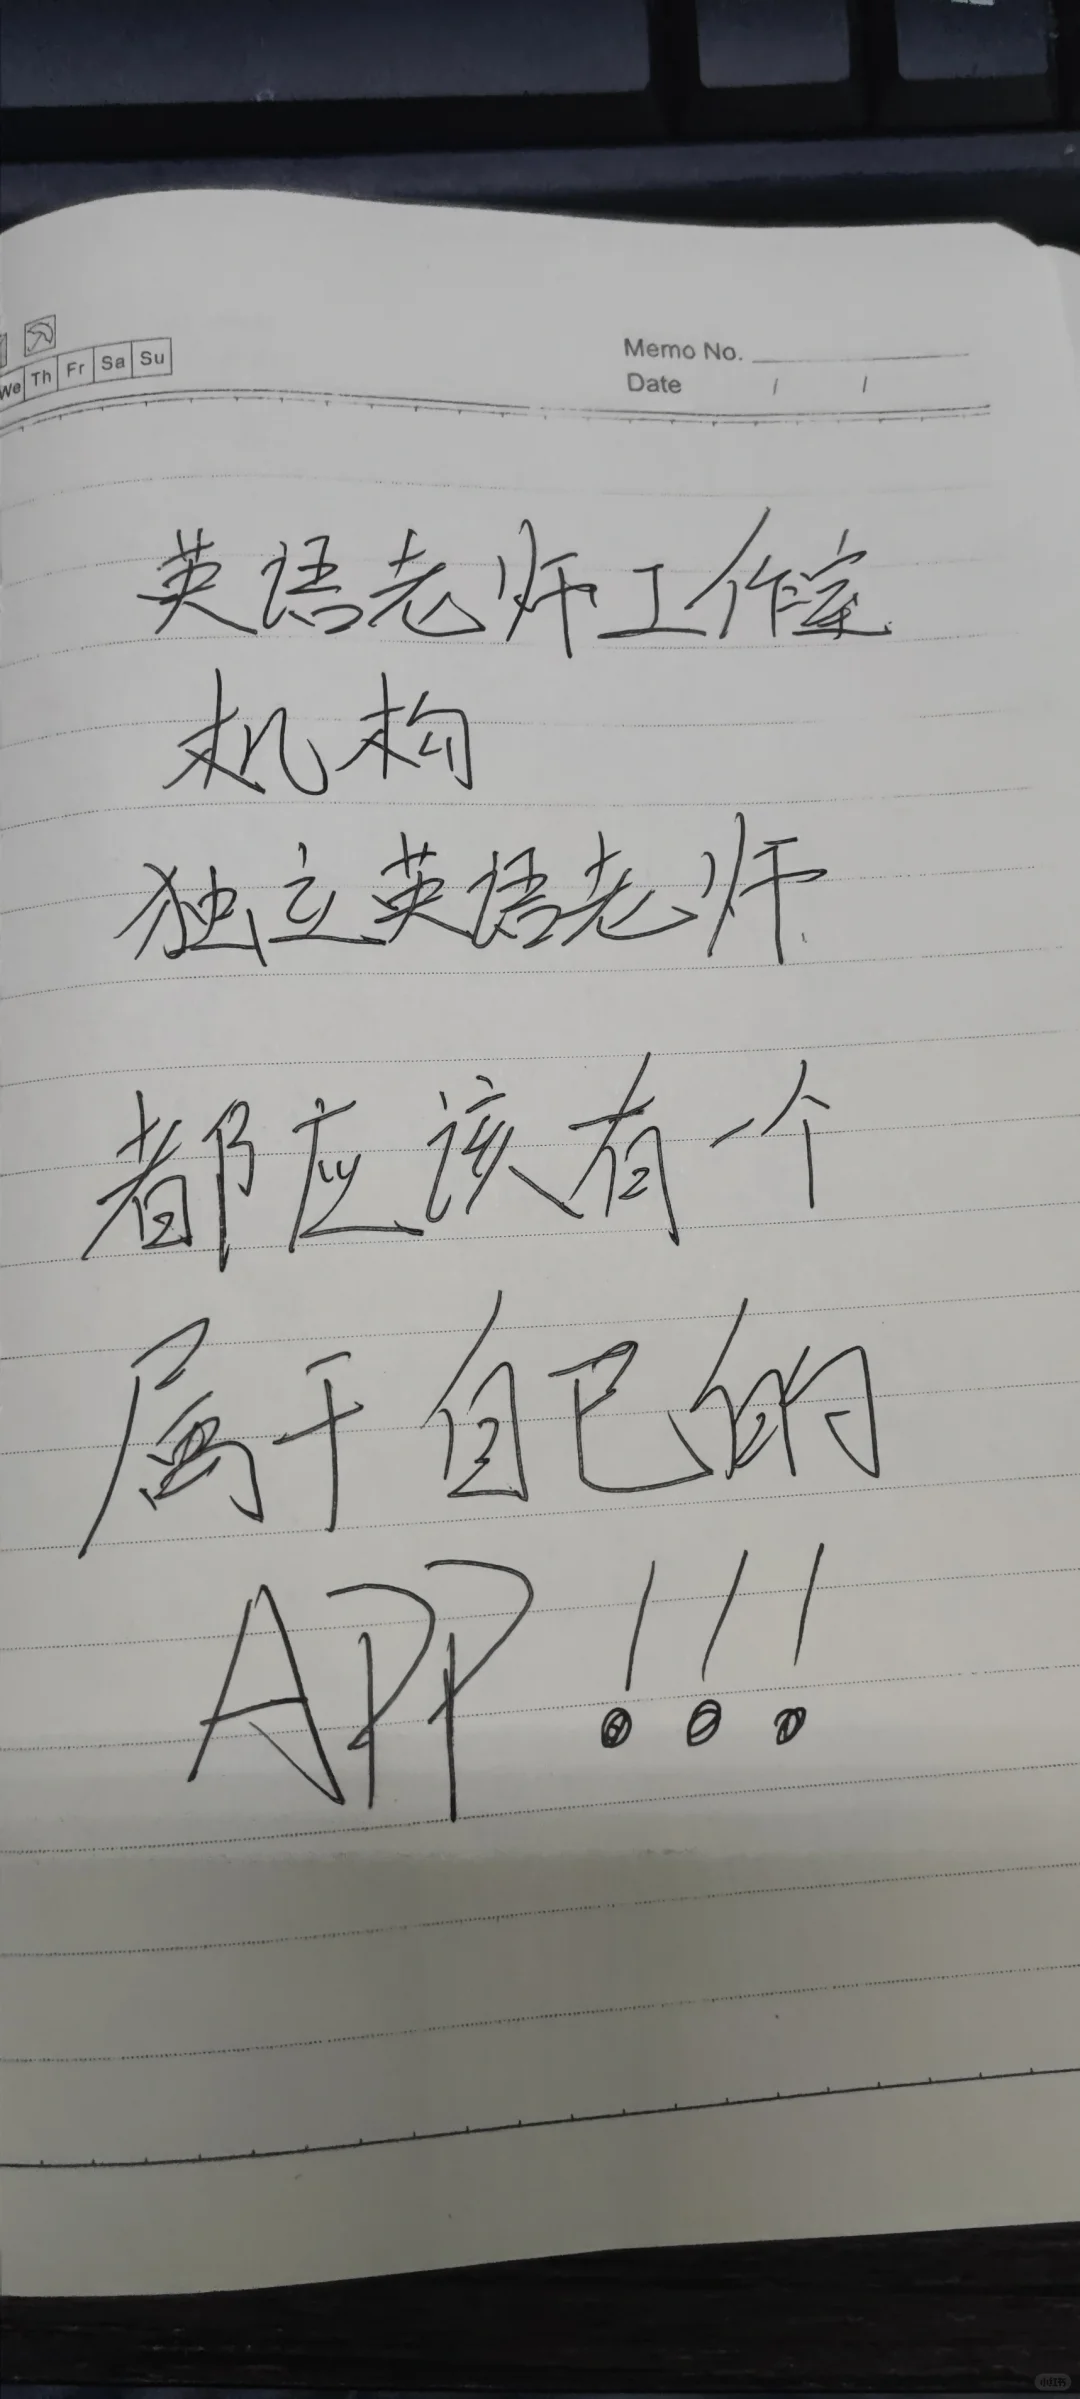 We Th Fr Sa Su
Memo No.
Date / /
英语老师工作室
机构
独立英语老师
都应该有一个
属于自己的
APP!!!
小红书